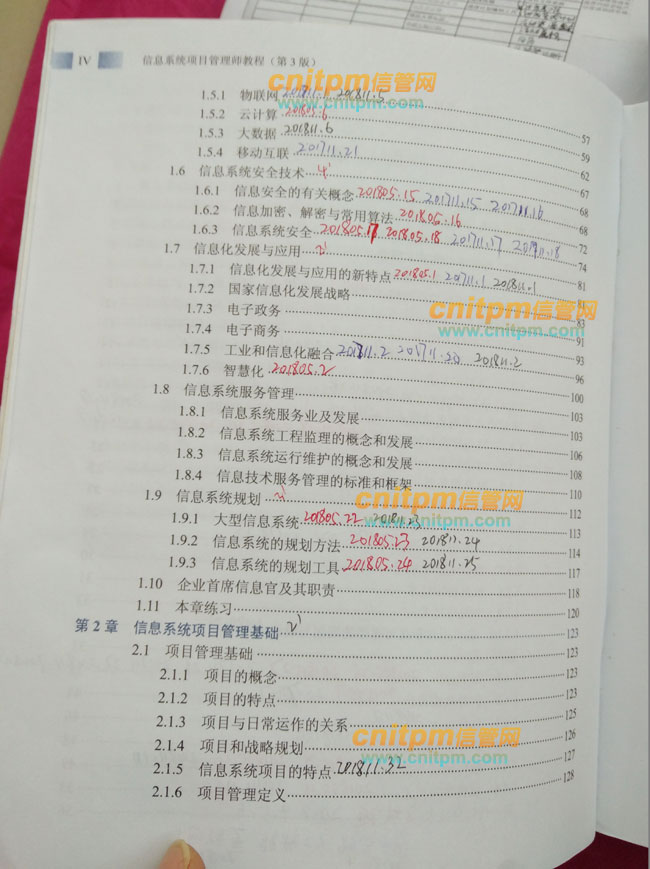 IV 信息系统项目管理师教程（第3版）
cnitpm信管网
www.cnitpm.com
1.5.1 物联网 201811.5 57
1.5.2 云计算 201805.6 59
1.5.3 大数据 201811.6 62
1.5.4 移动互联 201711.21 67
1.6 信息系统安全技术 4' 68
1.6.1 信息安全的有关概念 201805.15 201711.15 201711.16 68
1.6.2 信息加密、解密与常用算法 201805.16 72
1.6.3 信息系统安全 201805.17 201805.18 201711.17 201711.18 74
1.7 信息化发展与应用 2' 81
1.7.1 信息化发展与应用的新特点 201805.1 201711.1 201811.1 81
1.7.2 国家信息化发展战略 83
cnitpm信管网
www.cnitpm.com
1.7.3 电子政务 91
1.7.4 电子商务 93
1.7.5 工业和信息化融合 201711.20 201811.2 96
1.7.6 智慧化 201805.2 100
1.8 信息系统服务管理 103
1.8.1 信息系统服务业及发展 103
1.8.2 信息系统工程监理的概念和发展 106
1.8.3 信息系统运行维护的概念和发展 108
1.8.4 信息技术服务管理的标准和框架 110
1.9 信息系统规划 112
cnitpm信管网
www.cnitpm.com
1.9.1 大型信息系统 201805.22 113
1.9.2 信息系统的规划方法 201805.23 201811.24 114
1.9.3 信息系统的规划工具 201805.24 201811.25 117
1.10 企业首席信息官及其职责 118
1.11 本章练习 120
第 2 章 信息系统项目管理基础 2' 123
2.1 项目管理基础 123
2.1.1 项目的概念 123
2.1.2 项目的特点 123
2.1.3 项目与日常运作的关系 125
2.1.4 项目和战略规划 126
cnitpm信管网
www.cnitpm.com
2.1.5 信息系统项目的特点 201811.32 127
2.1.6 项目管理定义 128